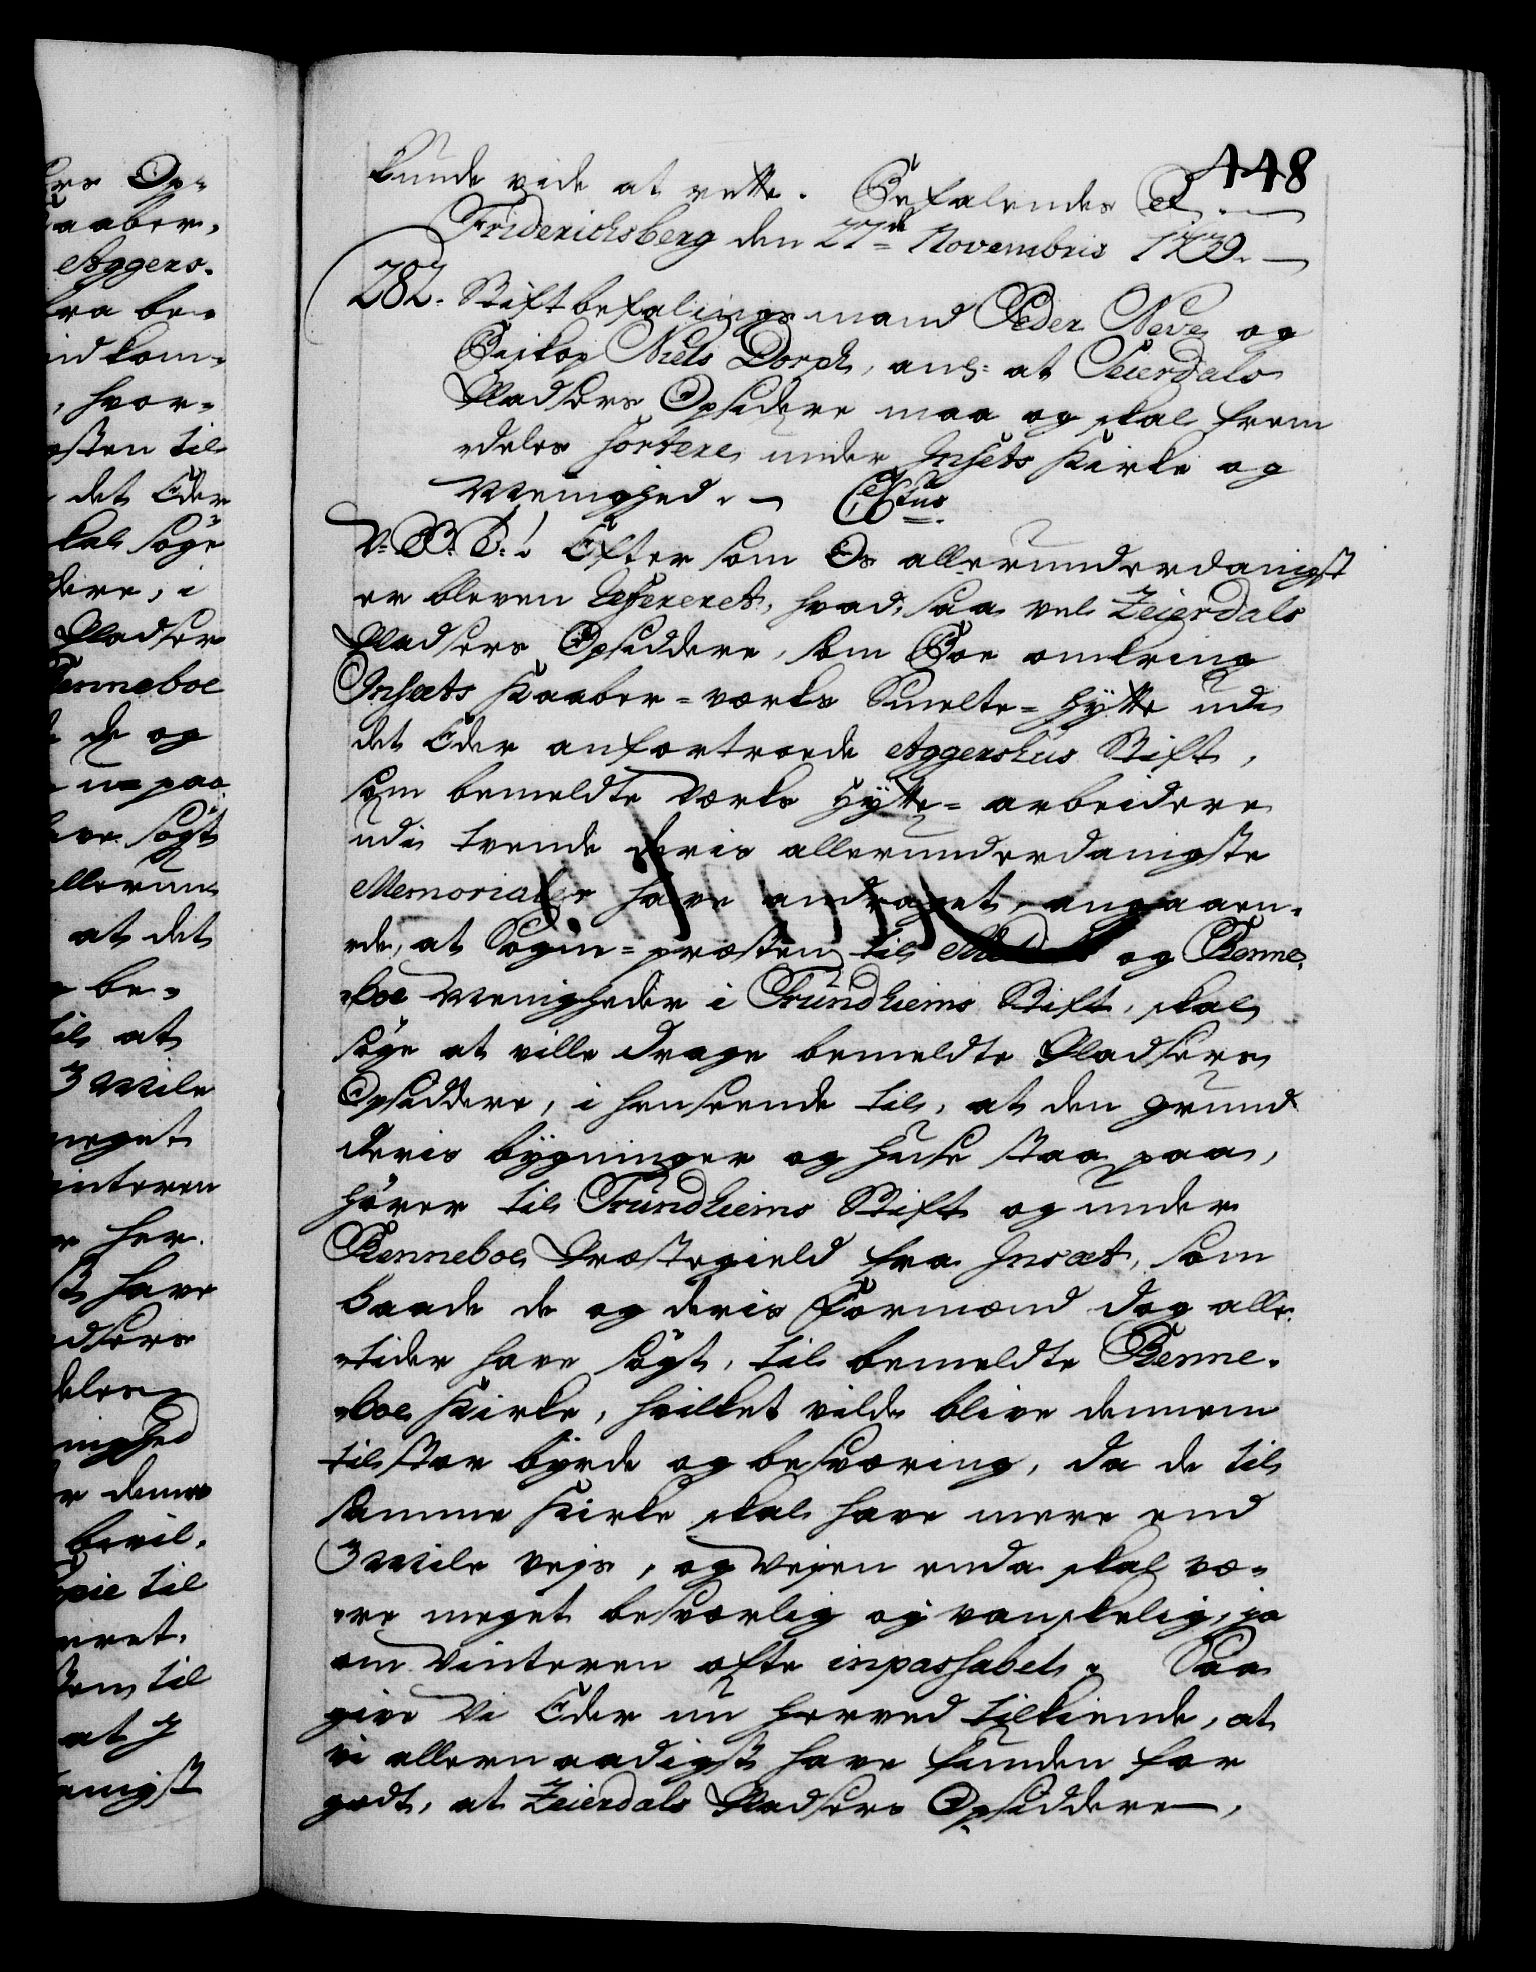 448
kunde vide at rette. Befalendes etc. —
Friderichsberg den 27de Novembris 1739. —
282. Stiftbefalingsmand Peder Neve og
Biskop Niels Dorph, anl: at Seierdals
Pladsers Opsidere maa og skal frem
deles sortere under Insets Kirke og
Meenighed. —
V: S: G: T! Eftersom Os allerunderdanigst
er bleven refereret, hvad, saa vel Zeierdals
Pladsers Opsiddere, som Boe omkring
Insæts Kaaber=værks Smelte=Hytte udi
det Eder anfortroede Aggershus Stift,
som bemeldte Værks Hytte=arbeidere
udi tvende deris allerunderdanigste
Memorialer have andraget, angaaen-
de, at Sogne=præsten til og Renne-
boe Meenigheder i Trundhiems Stift, skal
søge at ville drage bemeldte Pladsers
Opsiddere, i henseende til, at den grund
deris bygninger og Huse staa paa,
hører til Trundhiems Stift og under
Renneboe Præstegield fra Insæt, som
baade de og deris Formænd dog alle-
tider have søgt, til bemeldte Renne-
boe Kirke, hvilket vilde blive dennem
til stor byrde og besværing, da de til
samme Kirke skal have mere end
3 Mile vejs, og Vejen enda skal væ-
re meget besværlig og vanskelig, ja
om Vinteren ofte inpassabel. Saa
give Vi Eder nu herved tilkiende, at
vi allernaadigst have funden for
godt, at Zeierdals Pladsers Opsiddere,